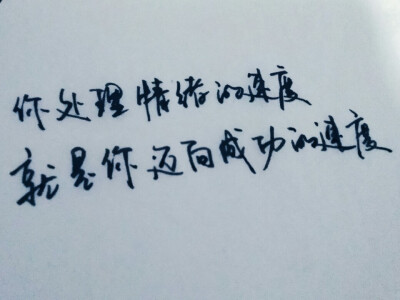 你处理情绪的速度
就是你迈向成功的速度